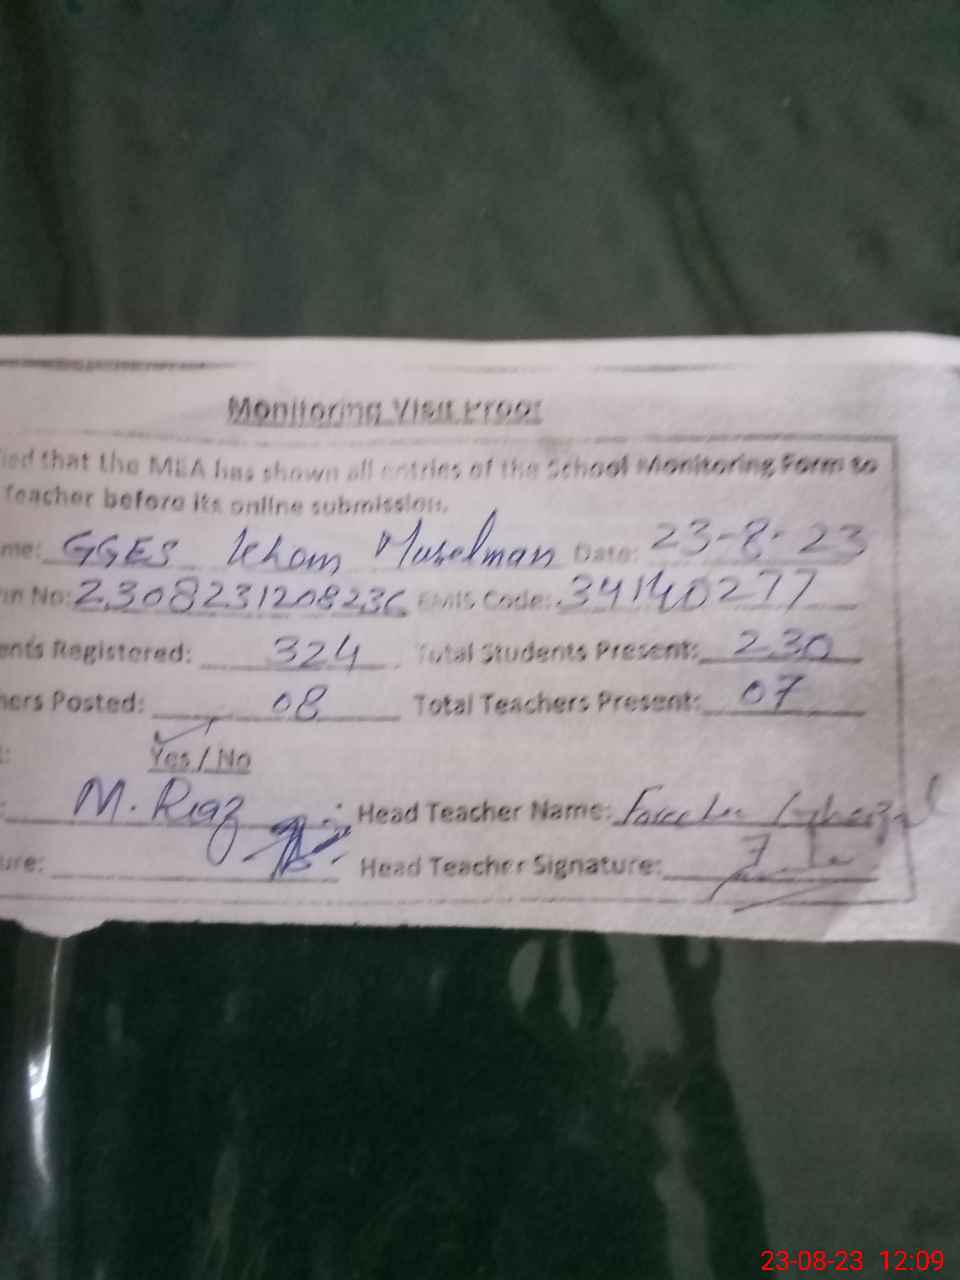 Monitoring Visit Proof
ied that the MEA has shown all entries of the School Monitoring Form to
Teacher before its online submission.
me: GGES Kham Muselman Date: 23-8-23
m No: 230823120823 EMIS Code: 34140277
ents Registered: 324 Total Students Present: 230
hers Posted: 08 Total Teachers Present: 07
Yes / No
M. Riaz Head Teacher Name:
ure: Head Teacher Signature:
23-08-23 12:09